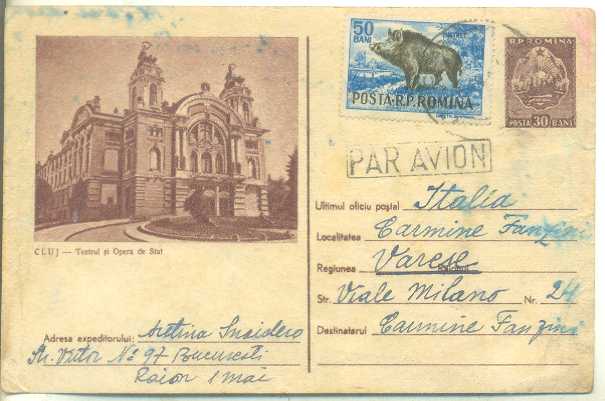 50
BANI
MISTREȚ
POSTA R.P. ROMINA
R.P. ROMINA
POSTA 30 BANI
PAR AVION
CLUJ — Teatrul și Opera de Stat
Ultimul oficiu poștal Italia
Localitatea Carmine Fanzini
Regiunea Varese
Str. Viale Milano Nr. 24
Destinatarul Carmine Fanzini
Adresa expeditorului:
Str. Victor No 97 Bucuresti
Raion 1 Mai